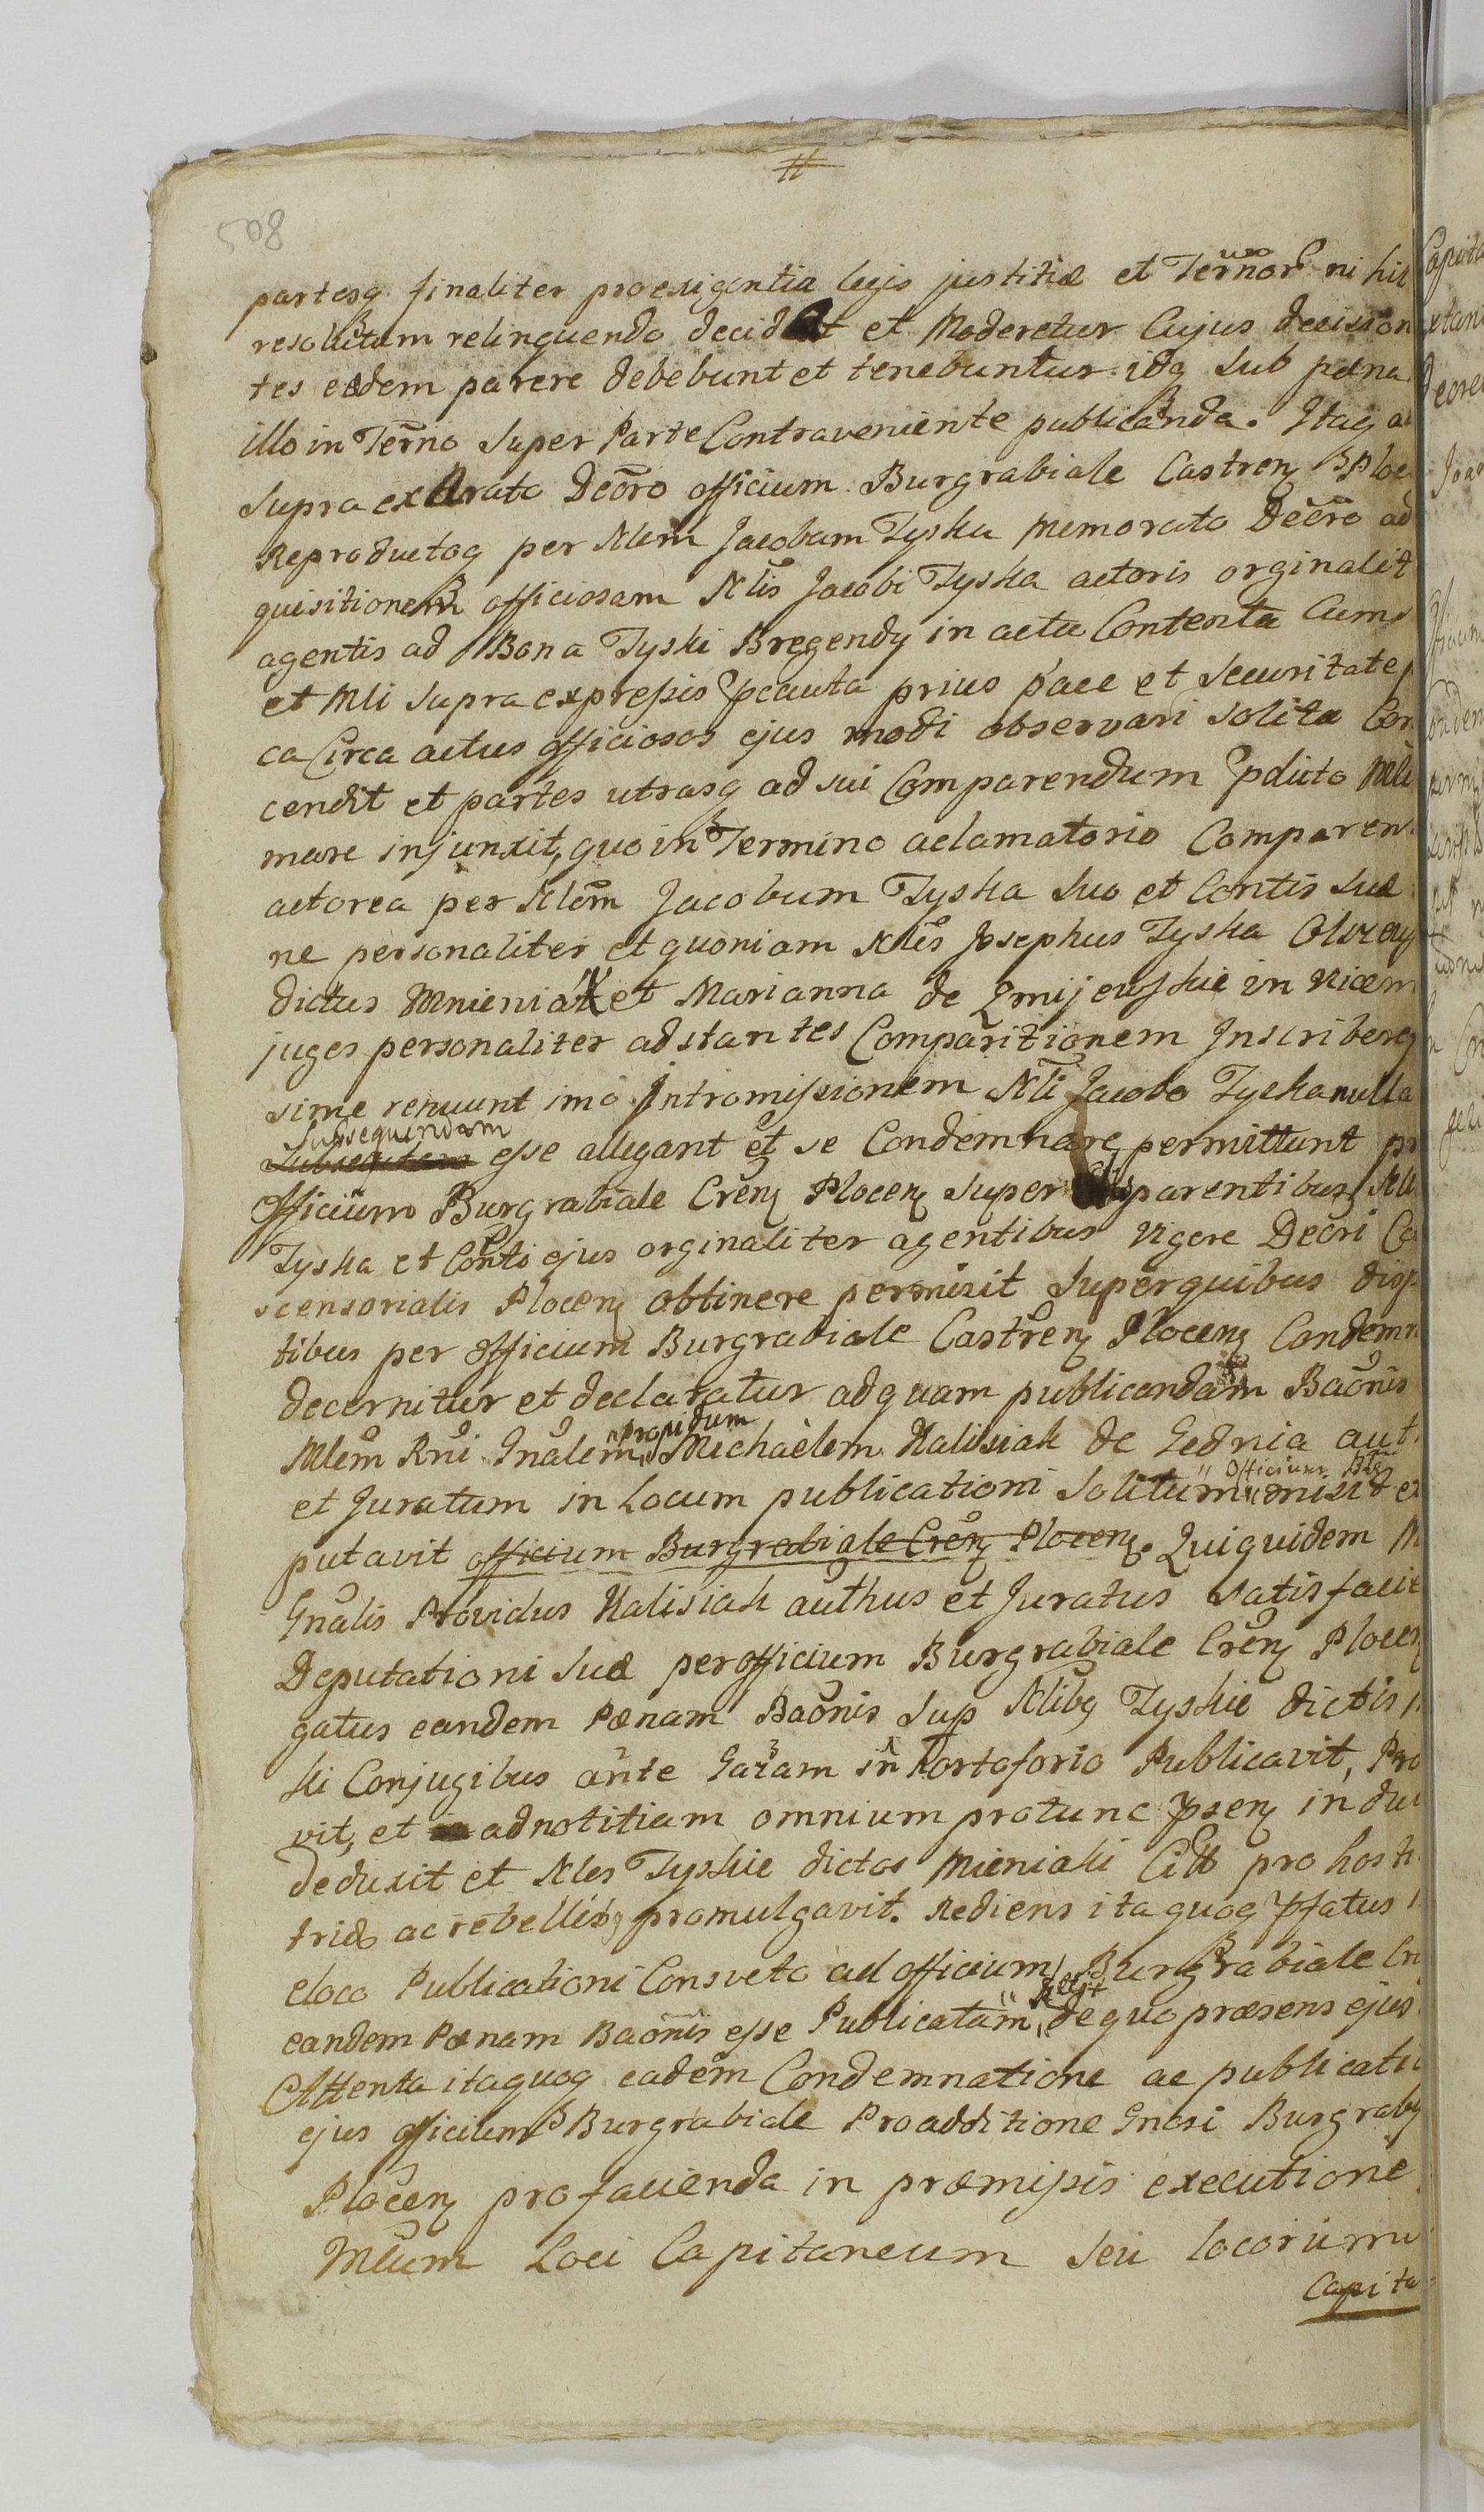 508
partesq finaliter pro exigentia legis justitiæ et Ternor ni hil
resolutum relinquendo decidat et Moderetur Cujus decision
tes eædem parere debebunt et tenebuntur idq sub pæna
illo in Terno super Parte Contraveniente publicanda. Itaq
supra exArato Decro officium Burgrabiale Castren Ploc
Reproductoq per Nlem Jacobum Tyska memorato Decro ad
quisitionem officiosam Nlis Jacobi Tyska actoris orginalit
agentis ad Bona Tyski Bregendy in actu Contenta Cum
et Mli supra expressis pcauta prius pace et securitate
ca Circa actus officiosos ejus modi observari solita Con
cendit et partes utrasq ad sui Comparendum pdicto Mli
mare injunxit, quo in Termino aclamatorio Comparen
actorea per Nlem Jacobum Tyska suo et Contis suæ
ne personaliter et quoniam Nles Josephus Tyska
dictus Mnieniak et Marianna de Zmijewskie in vicem
juges personaliter adstantes Comparitionem Inscribere
sime renuunt imo Intromissionem Nli Jacobo Tyska nulla
Subsequendam
esse allegant et se Condemnare permittunt
officium Burgrabiale Cren Plocen super parentibus
Tyska et Conti ejus orginaliter agentibus vigore Decri
scensorialis Plocen obtinere permisit superquibus
tibus per officium Burgrabiale Castren Plocen Condemn
decernitur et declaratur ad quam publicandam Baonis
providum
Mlem Rni Gnalem Michaèlem Kalisiak de Gednia aut
officium
et Juratum in Locum publicationi solitum misit
putavit officium Burgrabiale Cren Plocen. Qui quidem M
Gnalis Providus Kalisiak authus et Juratus satisfacie
Deputationi suæ per officium Burgrabiale Cren Plocen
gatus eandem Pænam Baonis Sup Nlibq Tyskie dictis
ki Conjugibus ante Garam in Portoforio Publicavit, Pro
vit, et ad notitiam omnium pro tunc psen in
deduxit et Nles Tyskie dictos Mieniaki Citt pro hosti
trid ac rebellibq promulgavit. Rediens itaquoq pfatus
eloco Publicationi Consveto ad officium Burgrabiale
eandem Pænam Baonis esse Publicatam de quo præsens ejus
Attenta itaquoq eadem Condemnatione ac publicati
ejus officium Burgrabiale Pro additione Gnosi Burgraby
Plocen pro facienda in præmissis executione
Mlum Loci Capitaneum seu locorum
Capita